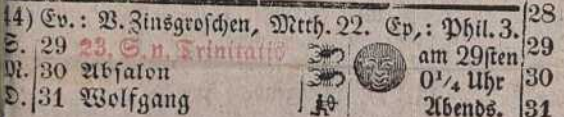 44) Ev.: V. Zinsgroschen, Mtth. 22. Ep,: Phil. 3. 28
S. 29 23. S. n. Trinitatis am 29sten 29
M. 30 Absalon 0¼ Uhr 30
D. 31 Wolfgang Abends. 31